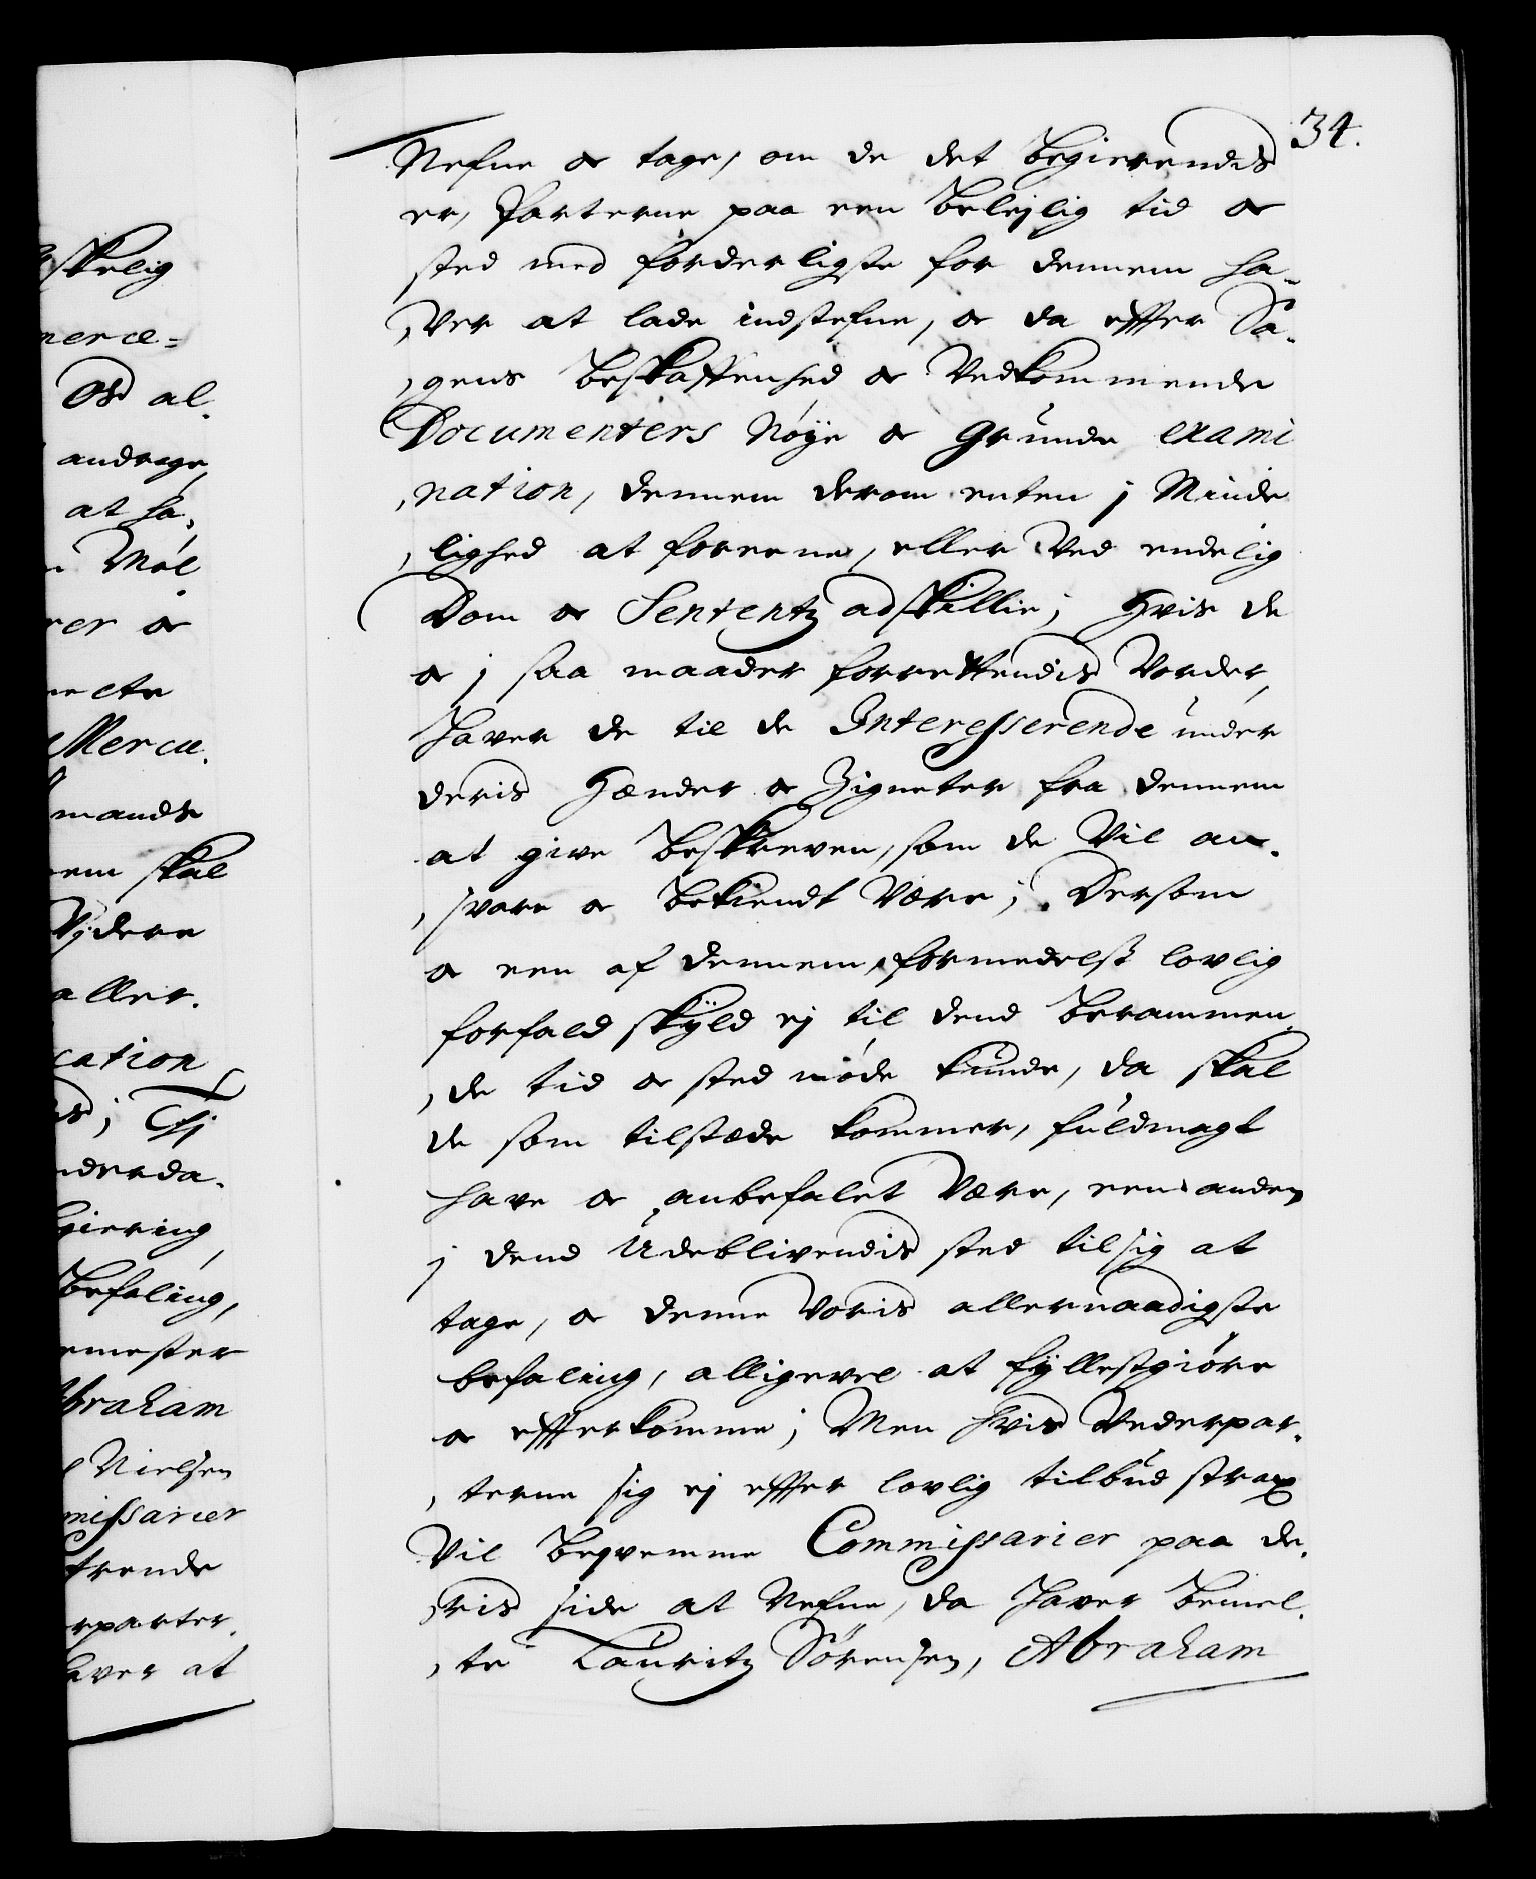 34.
Nefne oc tage, om de det begierendis
er, Parterne paa een belejlig tid oc
sted med forderligste for dennem ha-
ver at lade indstefne, oc da effter Sa-
gens beskaffenhed oc Vedkommende
Documenters Nøye oc Grunde exami
nation, dennem derom enten j Minde
lighed at foreene, eller ved endelig
Dom oc Sententz adskillie; Hvis de
oc j saa maader forrettendis vorder,
haver de til de Interesserende under
deris Hænder oc Zigneter fra dennem
at give beskreven, som de vil an-
svare oc bekiendt være; Dersom
oc een af dennem, formedelst lovlig
forfald skyld ej til dend berammen
de tid oc sted møde kunde, da skal
de som tilstæde kommer, fuldmagt
have oc anbefalet være, een anden
j dend Udeblivendis sted til sig at
tage, oc denne Voris allernaadigste
befaling, alligevel at fyllestgiøre
oc effterkomme; Men hvis Vederpar-
terne sig ej effter lovlig tilbud strax
vil beqvemme Commissarier paa de-
ris side at Nefne, da haver bemel-
te Lauritz Sørensen, Abraham
skelig
merce=
Os al-
andrage
at ha-
Mol
rer oc
Mercu-
mands
em skal
Vjdere
aller-
cation
Tj
nderda-
giering
befaling,
emester
Abraham
Nielsen
missarier
trende
rparter-
aver at